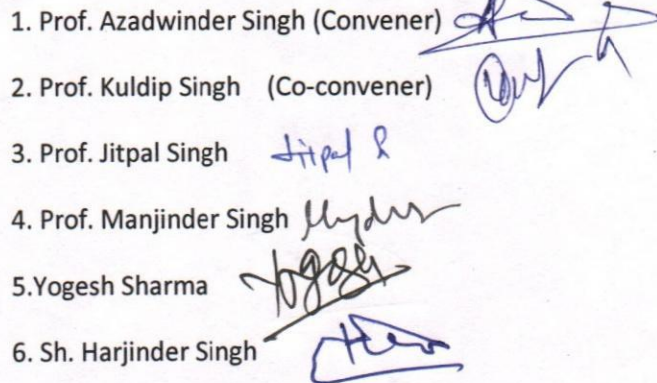 1. Prof. Azadwinder Singh (Convener)
2. Prof. Kuldip Singh (Co-convener)
3. Prof. Jitpal Singh Jitpal S
4. Prof. Manjinder Singh
5.Yogesh Sharma Yogesh
6. Sh. Harjinder Singh